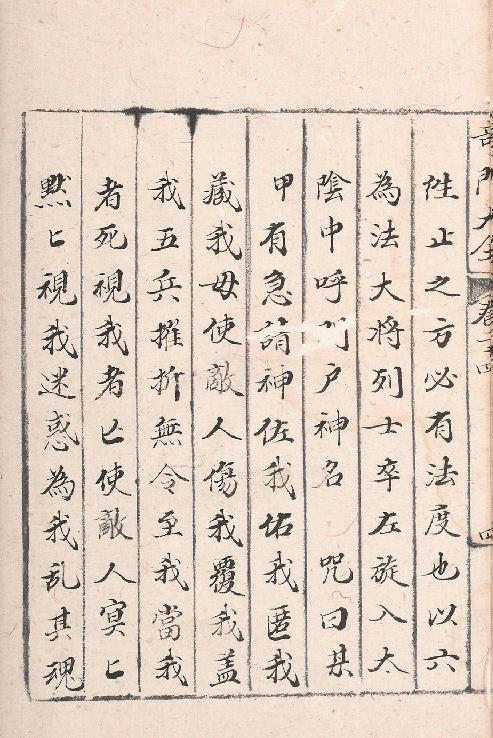 奇門大全 卷二十四 四
往止之方必有法度也以六
為法大将列士卒左旋入太
陰中呼门户神名 咒曰某
甲有急請神佐我佑我匿我
藏我毋使敵人傷我覆我盖
我五兵摧折無令至我當我
者死視我者亡使敵人冥匕
默匕視我迷惑為我乱其魂